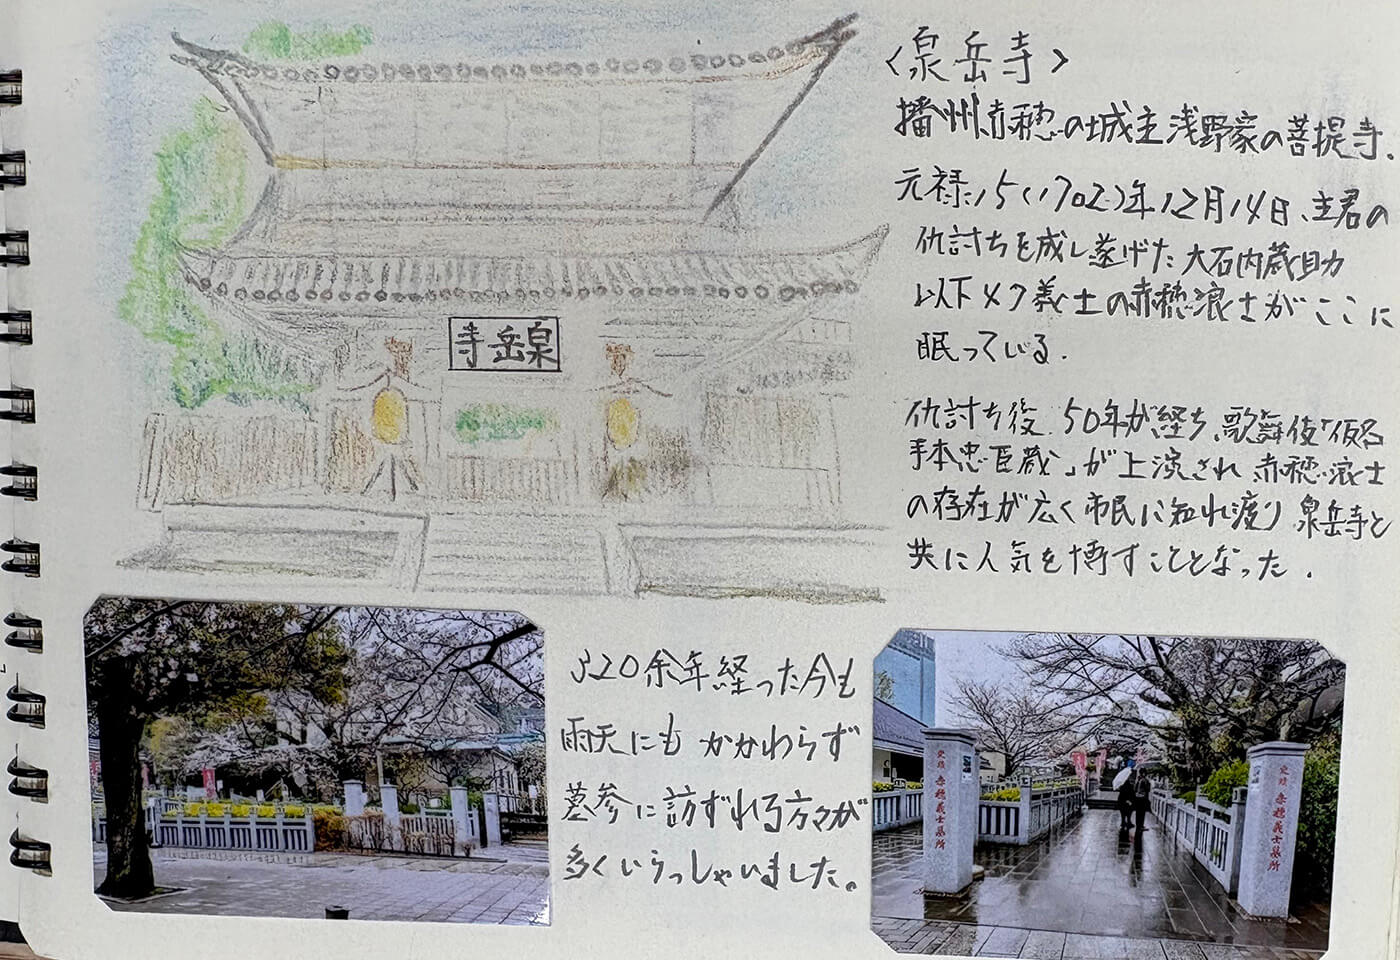 〈泉岳寺〉
播州赤穂の城主浅野家の菩提寺.
元禄15(1702)年12月14日、主君の
仇討ちを成し遂げた大石内蔵助
以下47義士の赤穂浪士がここに
眠っている.
仇討ち後50年が経ち、歌舞伎「仮名
手本忠臣蔵」が上演され赤穂浪士
の存在が広く市民に知れ渡り泉岳寺と
共に人気を博すこととなった.
寺岳泉
320余年経った今も
雨天にもかかわらず
墓参に訪ずれる方々が
多くいらっしゃいました。
史蹟 赤穂義士墓所
史蹟 赤穂義士墓所